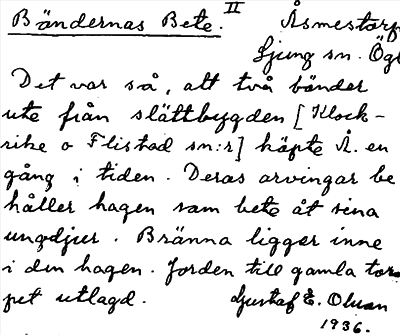 Bändernas Bete. II Åsmestorp
Ljung sn. Ög
Det var så, att två bönder
ute från slättbygden [Klock-
rike o Flistad sn:r] köpte Å. en
gång i tiden. Deras arvingar be
håller hagen som bete åt sina
ungdjur. Bränna ligger inne
i den hagen. Jorden till gamla tor
pet utlagd. Gustaf E. Olsson
1936.